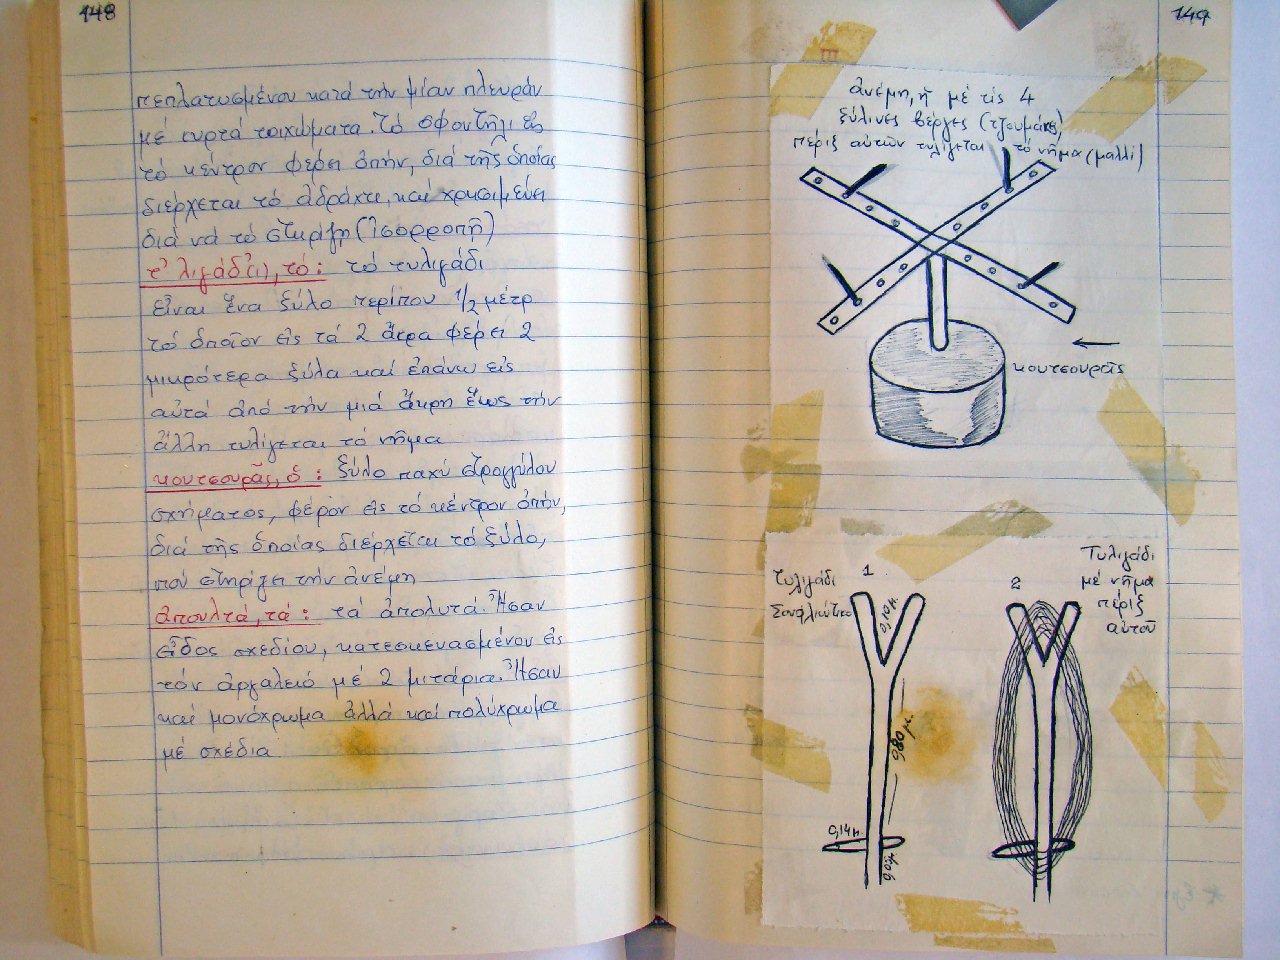 148
πεπλατυσμένου κατά τήν μίαν πλευράν
μέ κυρτά τοιχώματα. Τό σφοντήλι εἰς
τό κέντρον φέρει ὀπήν, διά τῆς ὁποίας
διέρχεται τό ἀδράχτι, καί χρησιμεύει
διά νά τό στηρίζῃ (ἰσορροπῇ)
τ' λιγάδ(ι), τό: τό τυλιγάδι
εἶναι ἕνα ξύλο περίπου 1/2 μέτρ
τό ὁποῖον εἰς τά 2 ἄκρα φέρει 2
μικρότερα ξύλα καί ἐπάνω εἰς
αὐτά ἀπό τήν μιά ἄκρη ἕως τήν
ἄλλη τυλίγεται τό νῆμα
κουτσουρᾶς, ὁ: ξύλο παχύ στρογγύλου
σχήματος, φέρον εἰς τό κέντρον ὀπήν,
διά τῆς ὁποίας διέρχεται τό ξύλο,
πού στηρίζει τήν ἀνέμη
ἀπουλτά, τά: τά ἀπολυτά. Ἦσαν
εἶδος σχεδίου, κατεσκευασμένου εἰς
τόν ἀργαλειό μέ 2 μιτάρια. Ἦσαν
καί μονόχρωμα ἀλλά καί πολύχρωμα
μέ σχέδια
149
ἀνέμη, ἤ μέ τίς 4
ξύλινες βέργες (τζουμάκες)
πέριξ αὐτῶν τυλίγεται τό νῆμα (μαλλί)
κουτσουρᾶς
τυλιγάδι
Σουφλιώτικο
1
0,10μ.
0,80 μ.
0,14μ
0,08μ
2
Τυλιγάδι
μέ νῆμα
πέριξ
αὐτοῦ